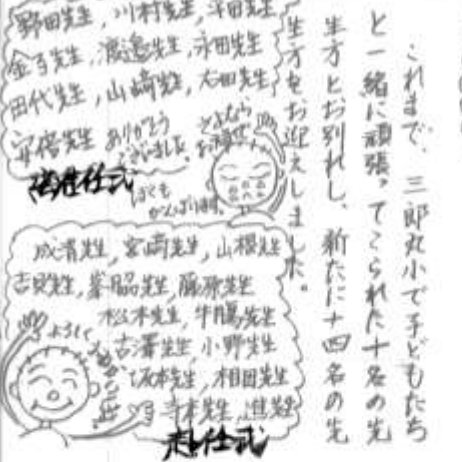 これまで、三郎丸小で子どもたち
と一緒に頑張ってこられた十名の先
生方とお別れし、新たに十四名の先
生方をお迎えしました。
野田先生,川村先生,
金子先生,渡邉先生,永田先生
田代先生,山崎先生,太田先生
安倍先生
ありがとう
ございました。
さよなら
お元気で
ぼくも
がんばります。
離任式
成清先生,宮崎先生,山根先生
古賀先生,峯脇先生,藤原先生
松本先生,牛嶋先生
古澤先生,小野先生
坂本先生,相田先生
寺本先生,進先生
よろしく
おねがいします
赴任式